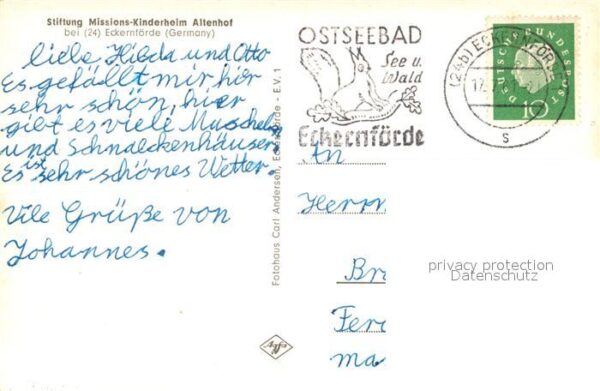 Stiftung Missions-Kinderheim Altenhof
bei (24) Eckernförde (Germany)
liebe Hilda und Otto
Es gefällt mir hier
sehr schön, hier
gibt es viele Muscheln
und Schnaeckenhäuser.
Es ist sehr schönes Wetter.
Vile Grüße von
Johannes.
Fotohaus Carl Andersen, Eckernförde - E.V. 1
OSTSEEBAD
See u.
Wald
Eckernförde
(24b) ECKERNFÖRDE
17.
s
DEUTSCHE BUNDESPOST
10
An
Herrn
Br
Fer
ma
privacy protection
Datenschutz
Agfa